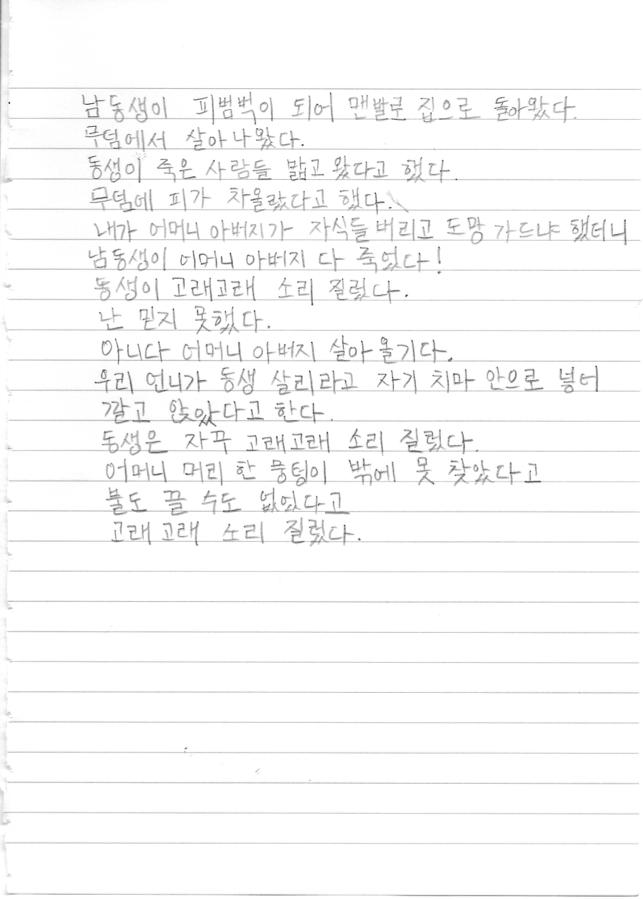 남동생이 피범벅이 되어 맨발로 집으로 돌아왔다.
무덤에서 살아나왔다.
동생이 죽은 사람들 밟고 왔다고 했다.
무덤에 피가 차올랐다고 했다.
내가 어머니 아버지가 자식들 버리고 도망 가드냐 했더니
남동생이 어머니 아버지 다 죽었다!
동생이 고래고래 소리 질렀다.
난 믿지 못했다.
아니다 어머니 아버지 살아 올기다.
우리 언니가 동생 살리라고 자기 치마 안으로 넣어
깔고 앉았다고 한다.
동생은 자꾸 고래고래 소리 질렀다.
어머니 머리 한 뭉텅이 밖에 못 찾았다고
불도 끌 수도 없었다고
고래고래 소리 질렀다.